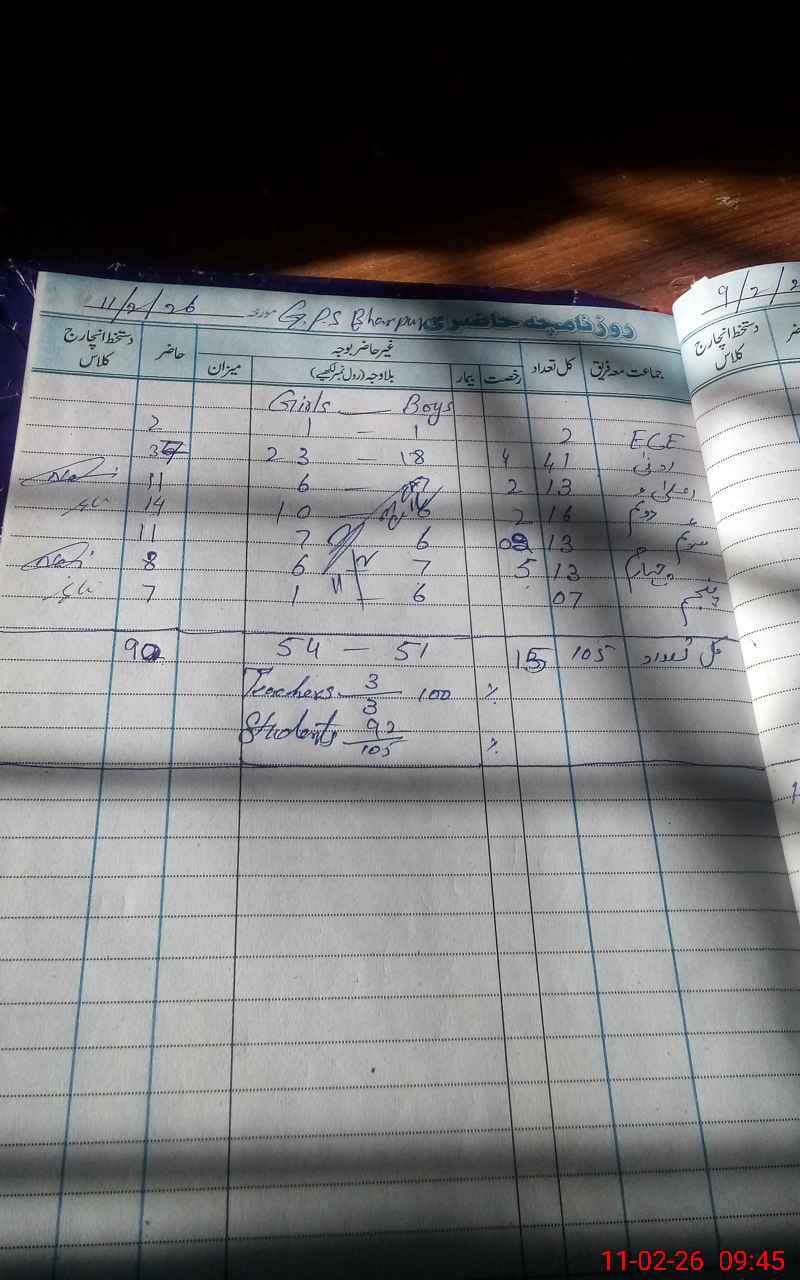 11/2/26 مورخہ G.P.S Bharpur روزنامچہ حاضری
جماعت معہ فریق کل تعداد رخصت بیمار غیر حاضر بوجہ حاضر دستخط انچارج کلاس
بلاوجہ (رول نمبر لکھیے) میزان
Girls — Boys
ECE 2 1 — 1 2
ادنیٰ 41 4 23 — 18
اعلیٰ 13 2 6 — 11
دوئم 16 2 10 — 6 14
سوئم 13 7 6 11
چہارم 13 5 6 7 8
پنجم 07 1 — 6 7
کل تعداد 105 15 54 — 51 90
Teachers 3/3 100 %
Students 92/105 %
9/2/2
دستخط انچارج کلاس
11-02-26 09:45